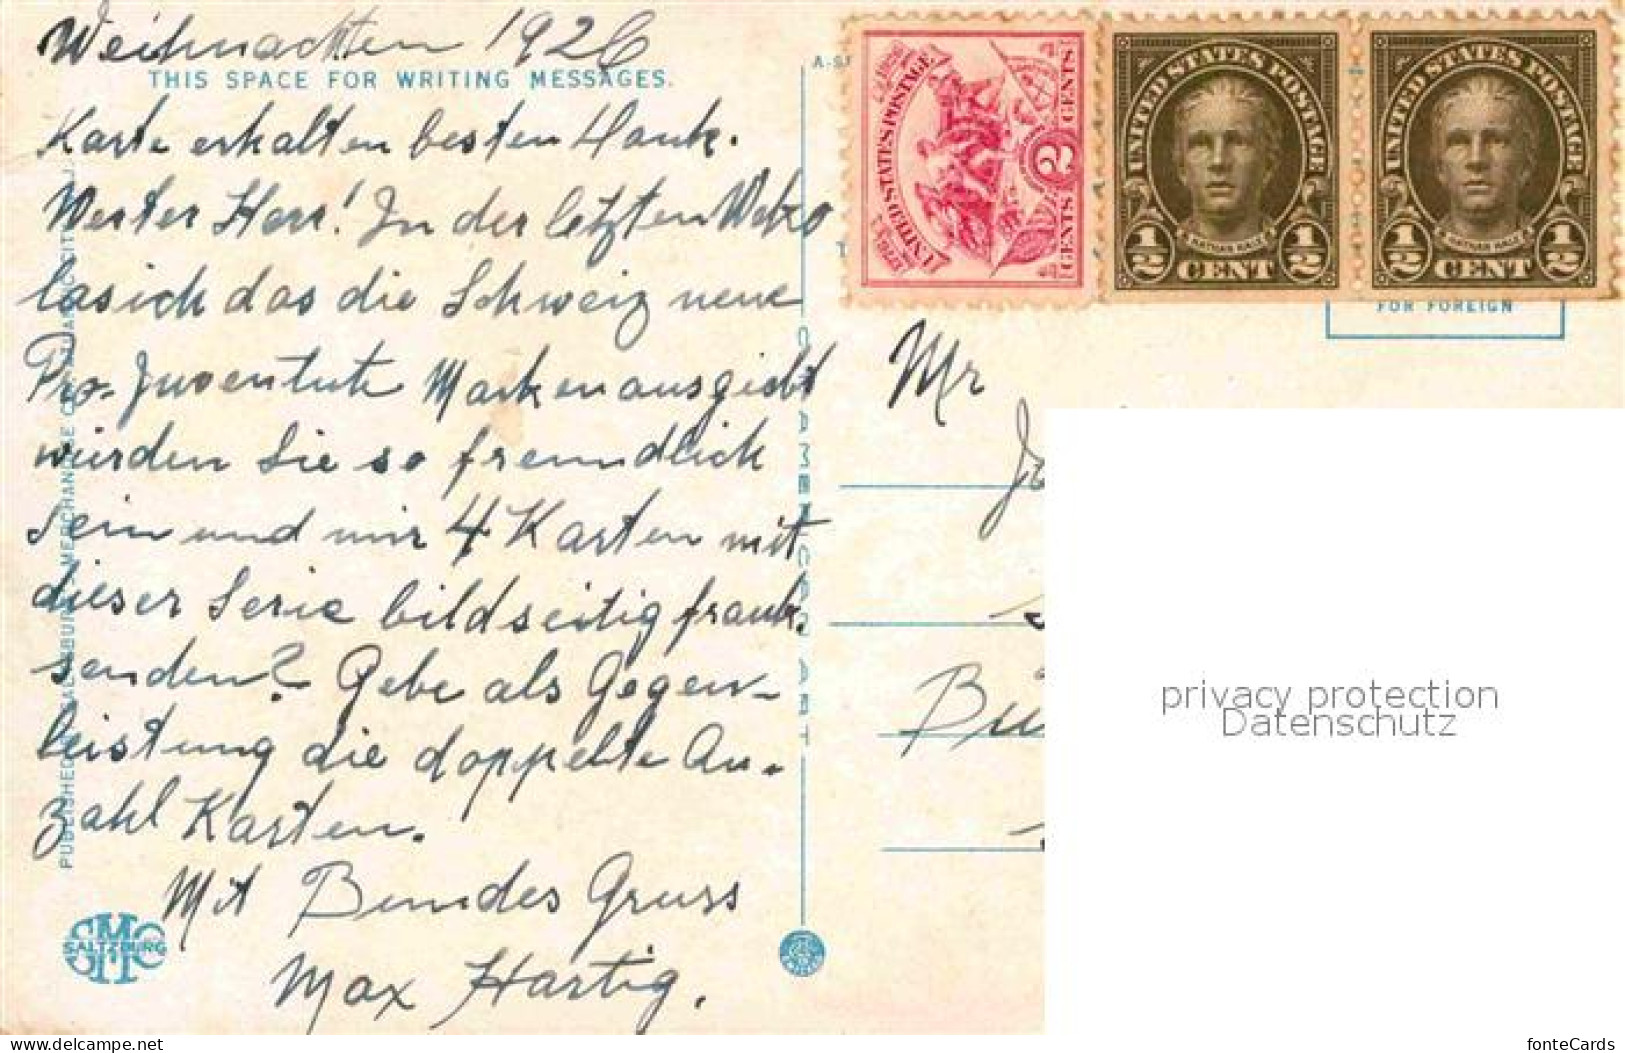 Weihnachten 1926
THIS SPACE FOR WRITING MESSAGES.
Karte erhalten besten Dank.
Werter Herr! In der letzten
las ich das die Schweiz neue
Pro-Juventute Marken ausgiebt
würden Sie so freundlich
sein und mir 4 Karten mit
dieser Serie bildseitig frank.
senden? Gebe als Gegen-
leistung die doppelte An-
zahl Karten.
Mit Bundes Gruss
Max Hartig.
SALTZBURG
UNITED STATES POSTAGE
2 CENTS 2 CENTS
UNITED STATES POSTAGE
NATHAN HALE
1/2 CENT 1/2
UNITED STATES POSTAGE
NATHAN HALE
1/2 CENT 1/2
FOR FOREIGN
Mr
privacy protection
Datenschutz
www.delcampe.net
fonteCards